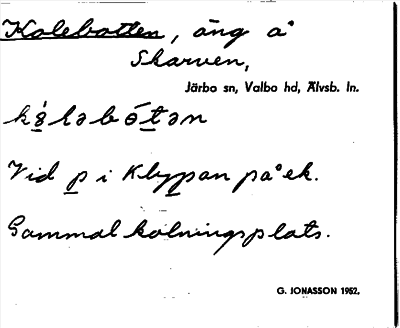 Kolebotten, äng å
Skarven,
Järbo sn, Valbo hd, Älvsb. ln.
Vid p i Klyppan på ek.
Gammal kolningsplats.
G. JONASSON 1952.